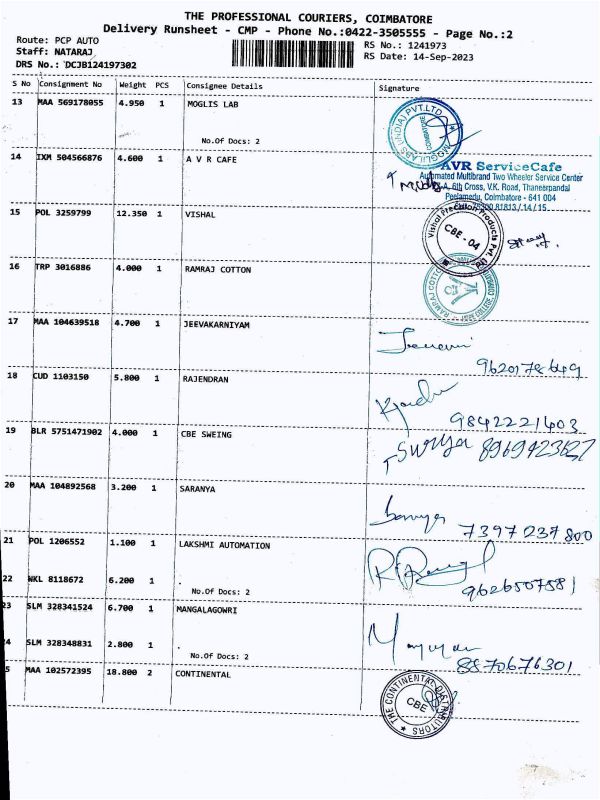 THE PROFESSIONAL COURIERS, COIMBATORE
Delivery Runsheet - CMP - Phone No.:0422-3505555 - Page No.:2
Route: PCP AUTO
Staff: NATARAJ
DRS No.: DCJB124197302
RS No.: 1241973
RS Date: 14-Sep-2023
S No Consignment No Weight PCS Consignee Details Signature
13 MAA 569178055 4.950 1 MOGLIS LAB
No.Of Docs: 2
14 IXM 504566876 4.600 1 A V R CAFE
AVR ServiceCafe
Automated Multibrand Two Wheeler Service Center
6th Cross, V.K. Road, Thaneerpandal
Peelamedu, Coimbatore - 641 004
15 POL 3259799 12.350 1 VISHAL
Vishal Precision Products Pvt. Ltd
CBE - 04
16 TRP 3016886 4.000 1 RAMRAJ COTTON
RAMRAJ COTTON
17 MAA 104639518 4.700 1 JEEVAKARNIYAM
18 CUD 1103150 5.800 1 RAJENDRAN
9842221403
19 BLR 5751471902 4.000 1 CBE SWEING
Surya
20 MAA 104892568 3.200 1 SARANYA
7397237800
21 POL 1206552 1.100 1 LAKSHMI AUTOMATION
22 NKL 8118672 6.200 1
No.Of Docs: 2
9626507581
23 SLM 328341524 6.700 1 MANGALAGOWRI
24 SLM 328348831 2.800 1
No.Of Docs: 2
8870676301
5 MAA 102572395 18.800 2 CONTINENTAL
THE CONTINENTAL DISTRIBUTORS
CBE